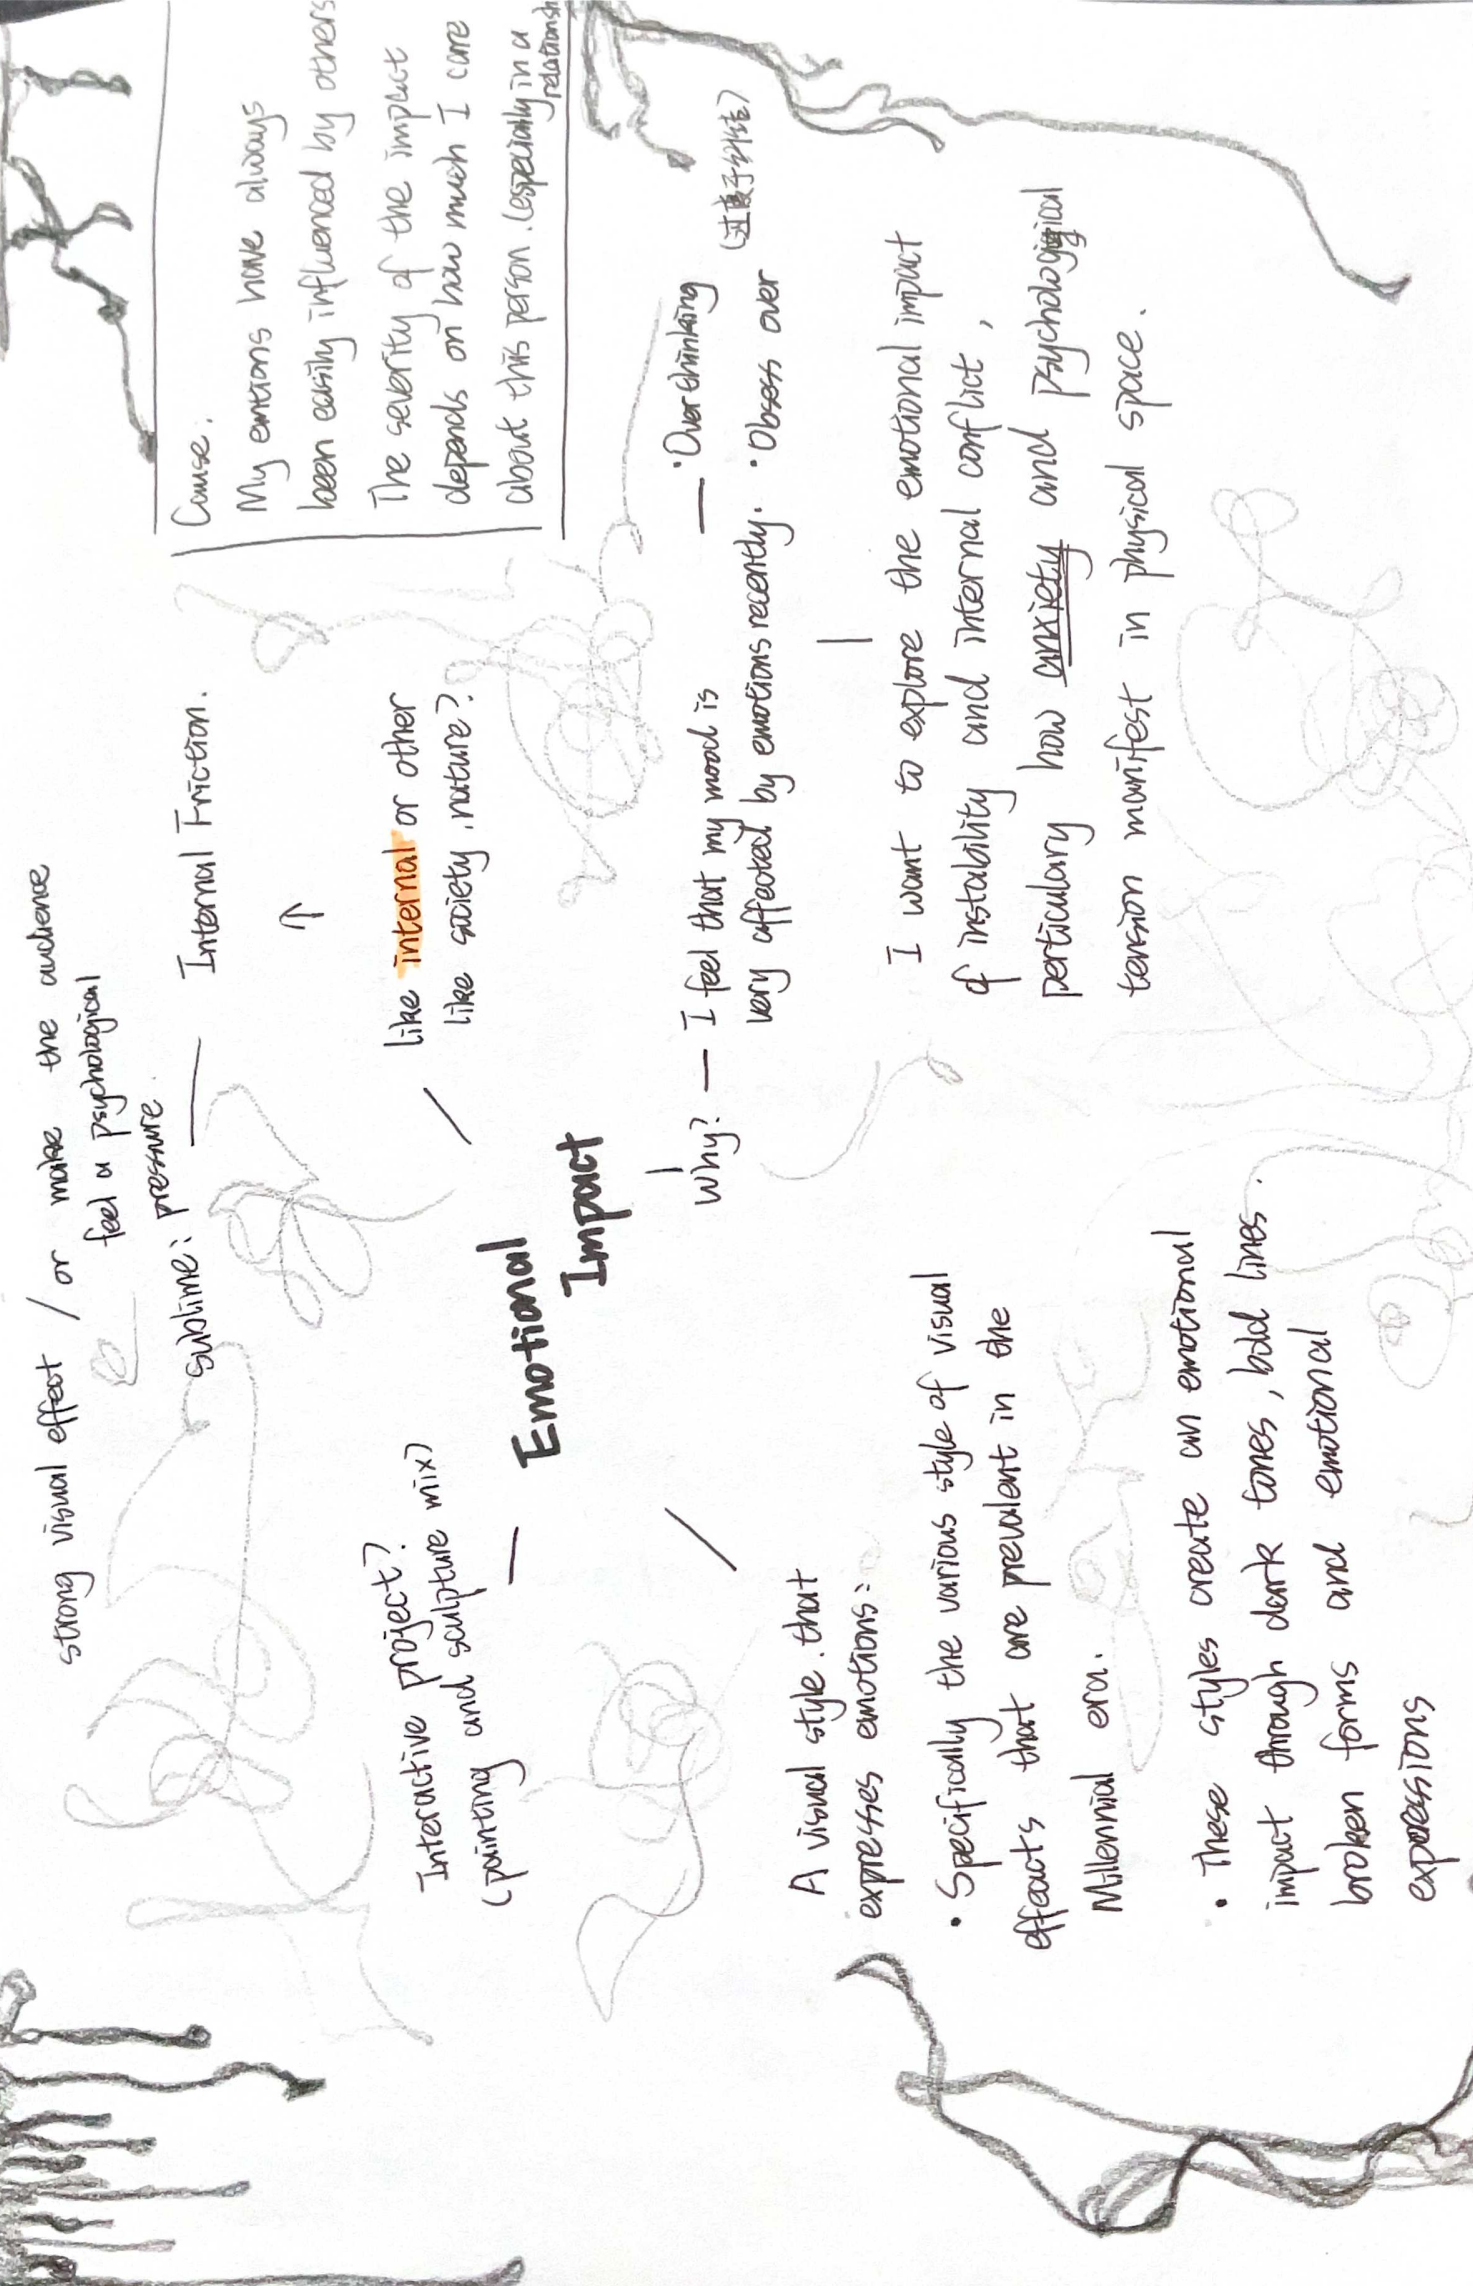 strong visual effect / or make the audience
feel a psychological
pressure.
sublime:
Internal Friction.
↑
like internal or other
like society, nature?
Cause.
My emotions have always
been easily influenced by others
The severity of the impact
depends on how much I care
about this person. (especially in a
relationsh
Interactive project?
(painting and sculpture mix)
Emotional
Impact
Why? — I feel that my mood is
very affected by emotions recently.
— · Overthinking
· Obsess over
(过度于纠结)
I want to explore the emotional impact
of instability and internal conflict,
perticulary how anxiety and psychological
tension manifest in physical space.
A visual style. that
expresses emotions:
· Specifically the various style of visual
effects that are prevalent in the
Millennial era.
· These styles create an emotional
impact through dark tones, bold lines.
broken forms and emotional
expressions